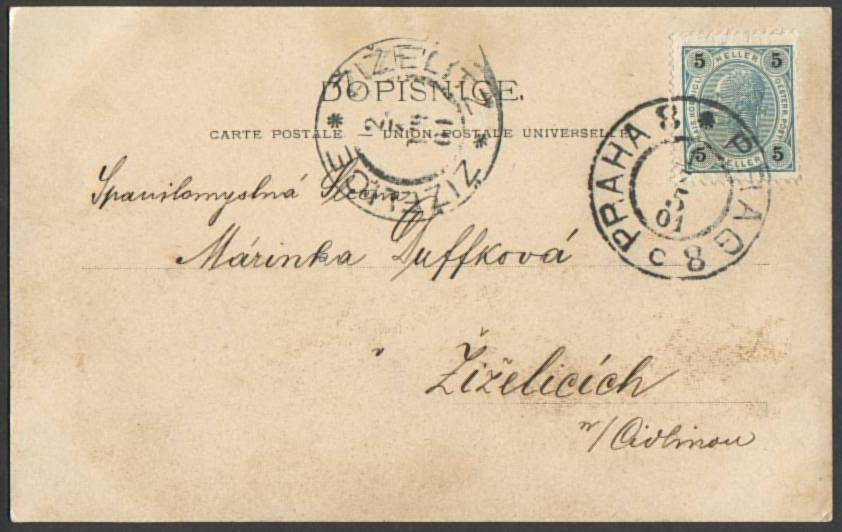 DOPISNICE.
CARTE POSTALE — UNION POSTALE UNIVERSELLE
Spanilomyslná Slečna
Márinka Duffková
v Žiželicích
n/Cidlinou
5 HELLER 5
5 HELLER 5
PRAHA 8 PRAG 8 c
01
ŽIŽELITZ
ŽIŽELICE
01